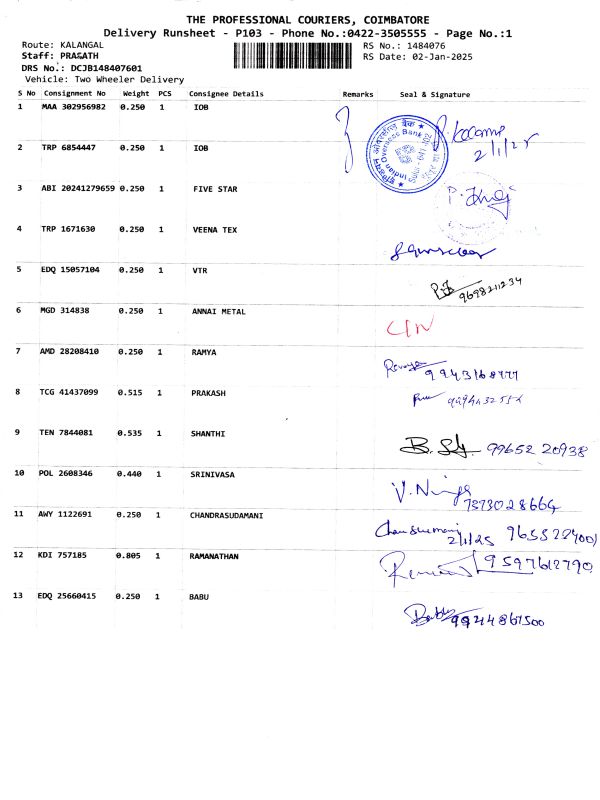 THE PROFESSIONAL COURIERS, COIMBATORE
Delivery Runsheet - P103 - Phone No.:0422-3505555 - Page No.:1
Route: KALANGAL RS No.: 1484076
Staff: PRASATH RS Date: 02-Jan-2025
DRS No.: DCJB148407601
Vehicle: Two Wheeler Delivery
S No Consignment No Weight PCS Consignee Details Remarks Seal & Signature
1 MAA 302956982 0.250 1 IOB
2/1/25
2 TRP 6854447 0.250 1 IOB
Indian Overseas Bank
3 ABI 20241279659 0.250 1 FIVE STAR
4 TRP 1671630 0.250 1 VEENA TEX
5 EDQ 15057104 0.250 1 VTR
9698211234
6 MGD 314838 0.250 1 ANNAI METAL
7 AMD 28208410 0.250 1 RAMYA
Ramya
8 TCG 41437099 0.515 1 PRAKASH
9 TEN 7844081 0.535 1 SHANTHI
99652 20938
10 POL 2608346 0.440 1 SRINIVASA
7373028664
11 AWY 1122691 0.250 1 CHANDRASUDAMANI
2/1/25
12 KDI 757185 0.805 1 RAMANATHAN
9597612790
13 EDQ 25660415 0.250 1 BABU
Babu 9944861500